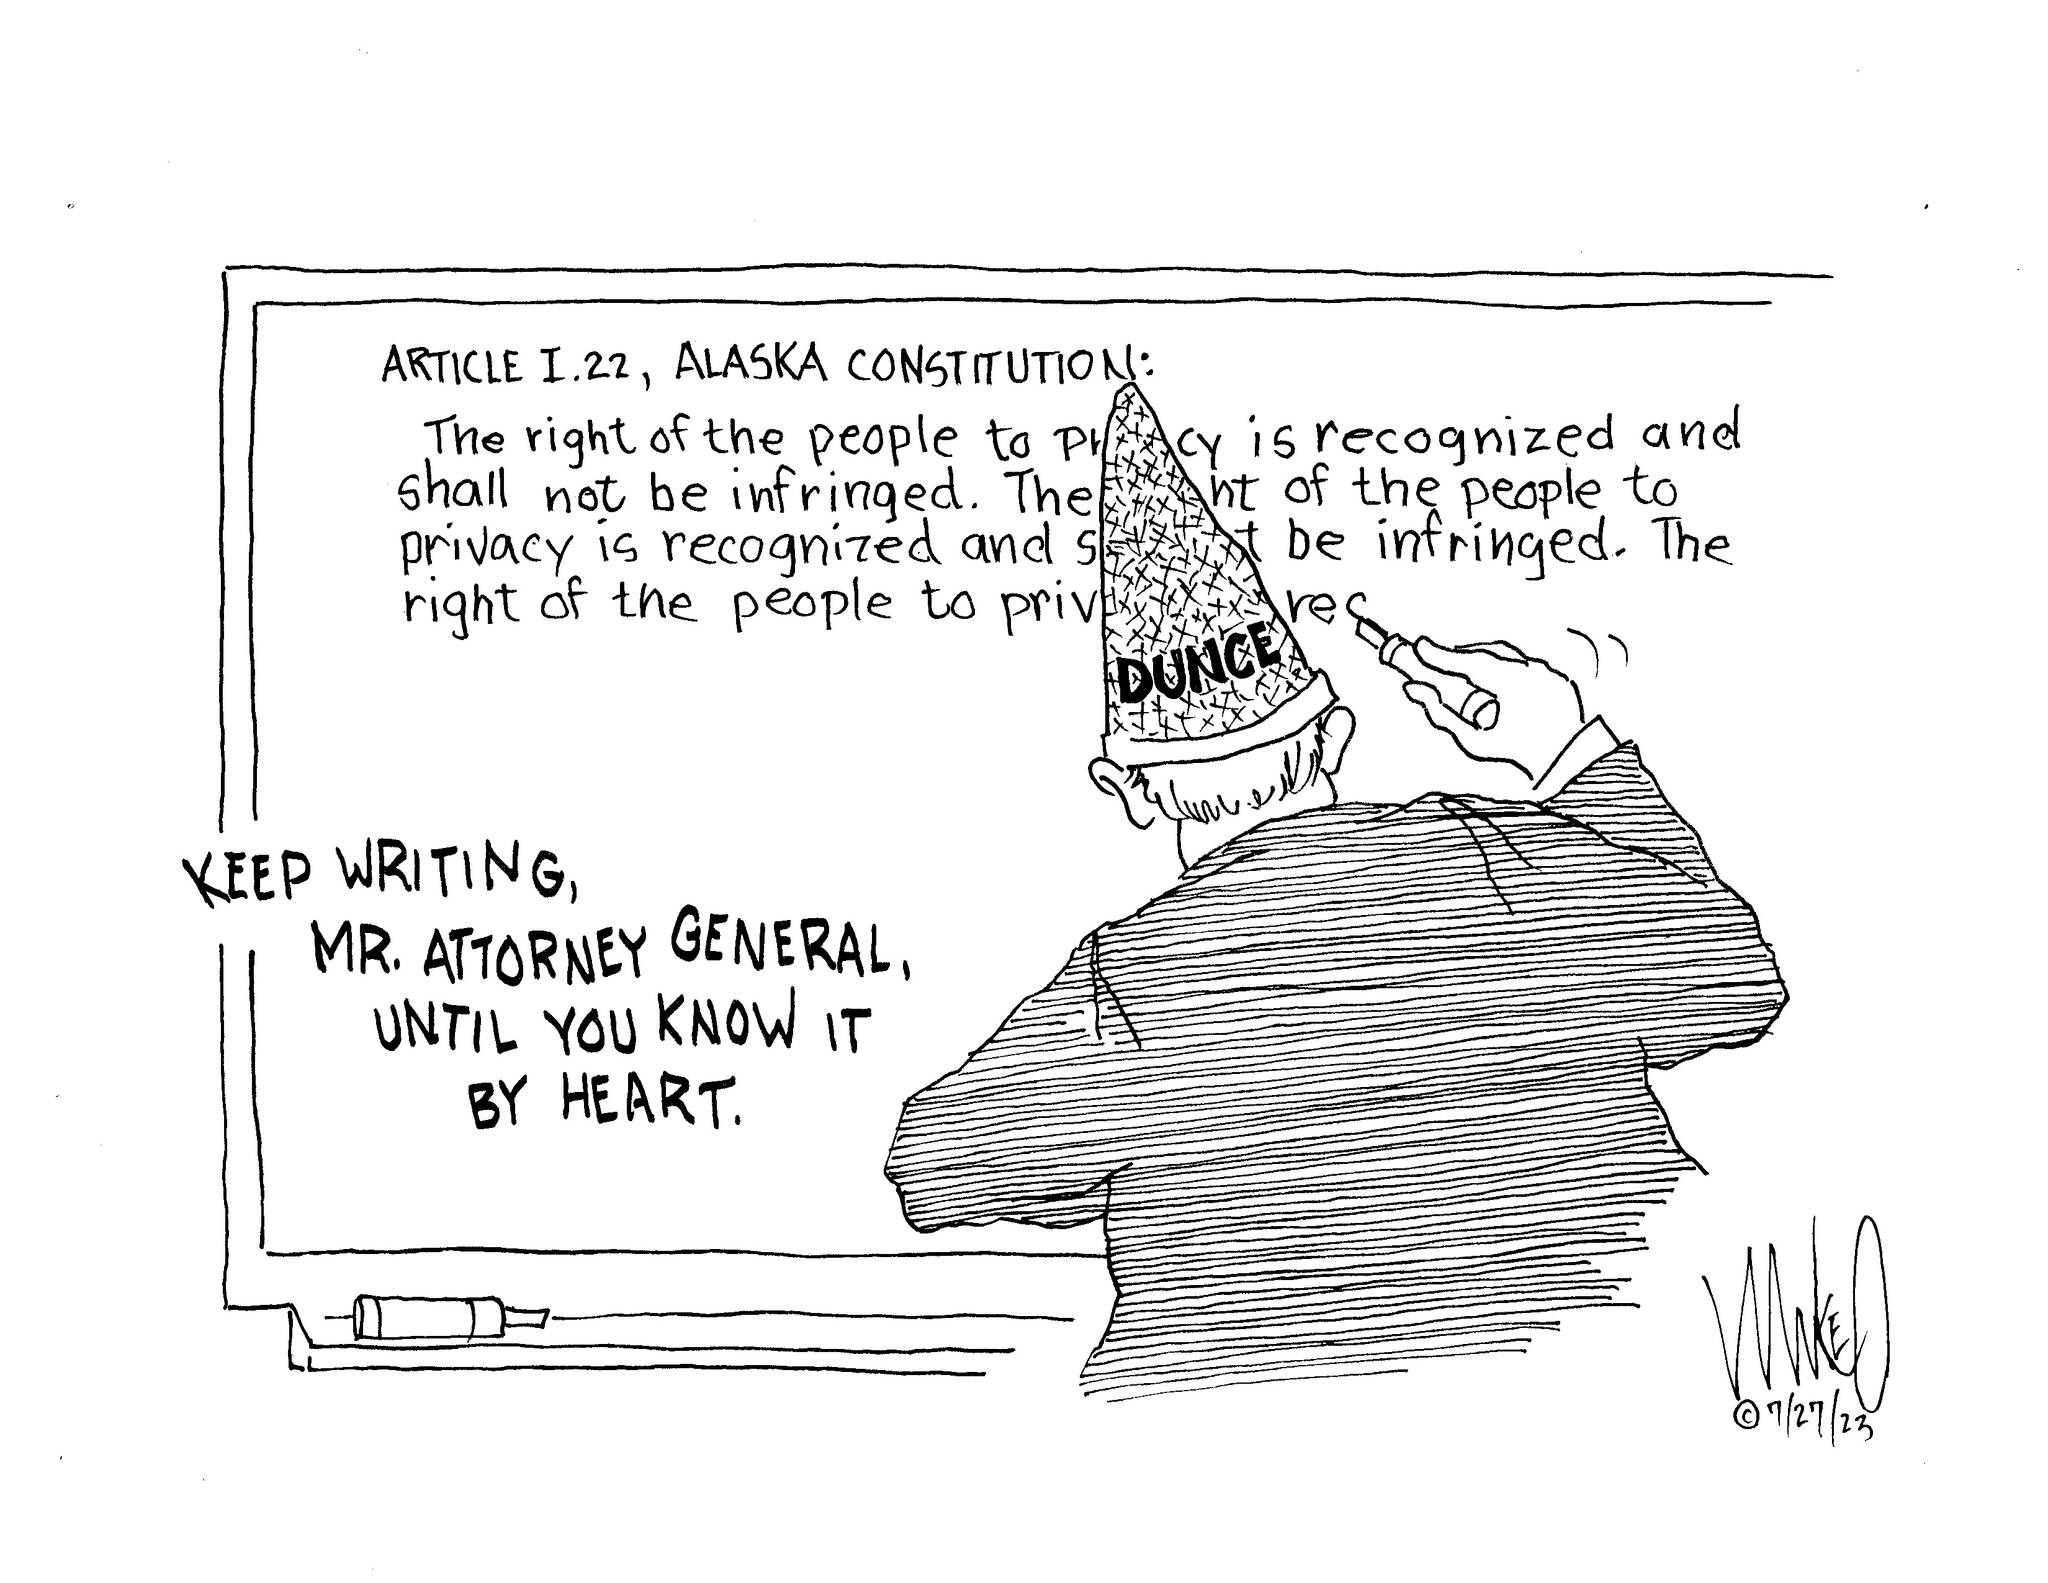 ARTICLE I.22, ALASKA CONSTITUTION:
The right of the people to pr cy is recognized and
shall not be infringed. The ht of the people to
privacy is recognized and s t be infringed. The
right of the people to priv rec
DUNCE
KEEP WRITING,
MR. ATTORNEY GENERAL,
UNTIL YOU KNOW IT
BY HEART.
© 7/27/23